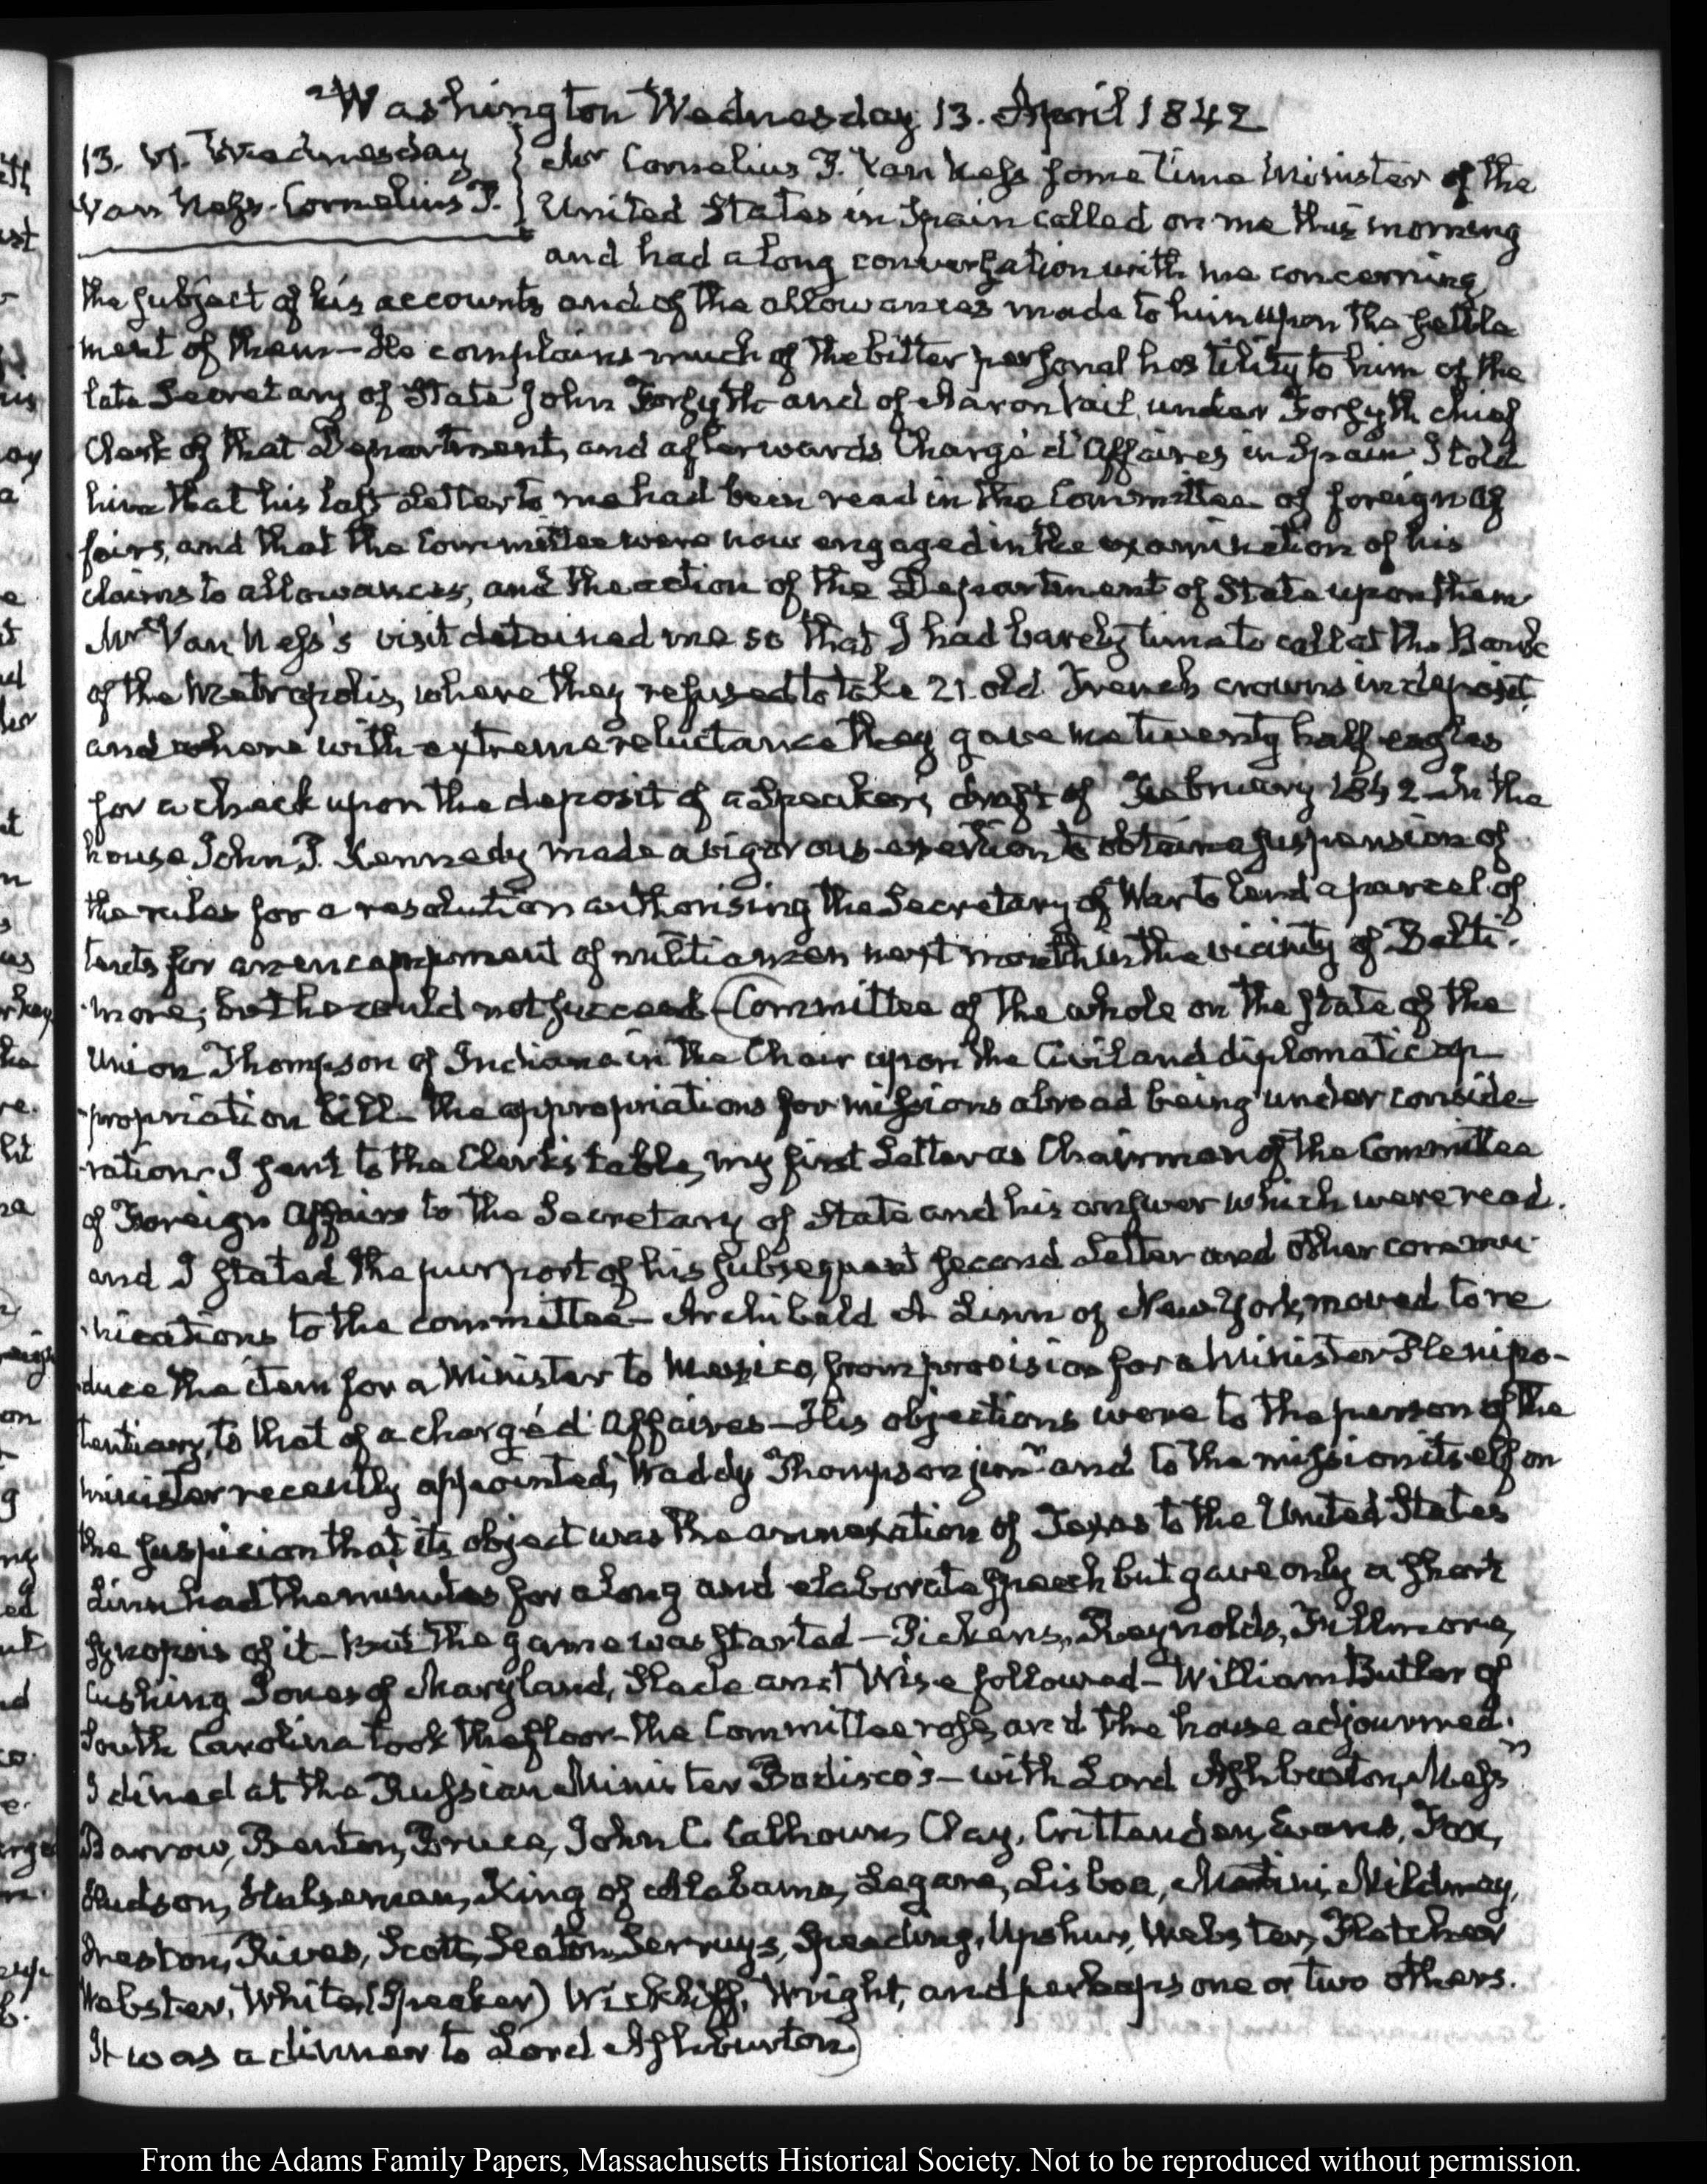 Washington Wednesday 13. April 1842
13. VI. Wednesday
Van Ness. Cornelius P.
Mr Cornelius P. Van Ness some time Minister of the
United States in Spain called on me this morning
and had a long conversation with me concerning
the subject of his accounts and of the allowances made to him upon the settle
ment of them— He complains much of the bitter personal hostility to him of the
late Secretary of State John Forsyth and of Aaron Vail, under Forsyth chief
Clerk of that Department, and afterwards Chargé d'Affaires in Spain. I told
him that his last Letter to me had been read in the Committee of foreign Af
fairs, and that the Committee were now engaged in the examination of his
claims to allowances, and the action of the Department of State upon them
Mr Van Ness's visit detained me so that I had barely time to call at the Bank
of the Metropolis, where they refused to take 21. old French crowns in deposit,
and where with extreme reluctance they gave me twenty half eagles
for a check upon the deposit of a Speaker's draft of February 1842— In the
house John P. Kennedy made a vigorous exertion to obtain a suspension of
the rules for a resolution authorising the Secretary of War to lend a parcel of
tents for an encampment of militia men next month in the vicinity of Balti-
-more; but he could not succeed— (Committee of the whole on the state of the
Union Thompson of Indiana in the Chair upon the Civil and diplomatic ap
-propriation bill— The appropriations for missions abroad being under conside-
-ration I sent to the Clerk's table, my first Letter as Chairman of the Committee
of Foreign Affairs to the Secretary of State and his answer which were read.
and I stated the purport of his subsequent second Letter and other commu-
-nications to the committee— Archibald A Linn of New-York, moved to re
duce the item for a Minister to Mexico, from provision for a Minister Plenipo-
tentiary, to that of a chargé d'Affaires— His objections were to the person of the
minister recently appointed, Waddy Thompson junr and to the mission itself on
the suspicion that its object was the annexation of Texas to the United States
Linn had the minutes for a long and elaborate speech but gave only a short
synopsis of it— But the game was started— Pickens, Reynolds, Fillmore,
Cushing Jones of Maryland, Slade and Wise followed— William Butler of
South Carolina took the floor— The Committee rose, and the house adjourned.
I dined at the Russian Minister Bodisco's— with Lord Ashburton, Messrs
Barrow, Benton, Bruce, John C. Calhoun, Clay, Crittenden, Evans, Fox,
Hudson, Hulseman, King of Alabama, Legare, Lisboa, Martini, Mildmay,
Preston, Rives, Scott, Seaton, Serruys, Spending, Upshur, Webster, Fletcher
Webster, White (Speaker) Wickliff, Wright, and perhaps one or two others.
It was a dinner to Lord Ashburton)
From the Adams Family Papers, Massachusetts Historical Society. Not to be reproduced without permission.